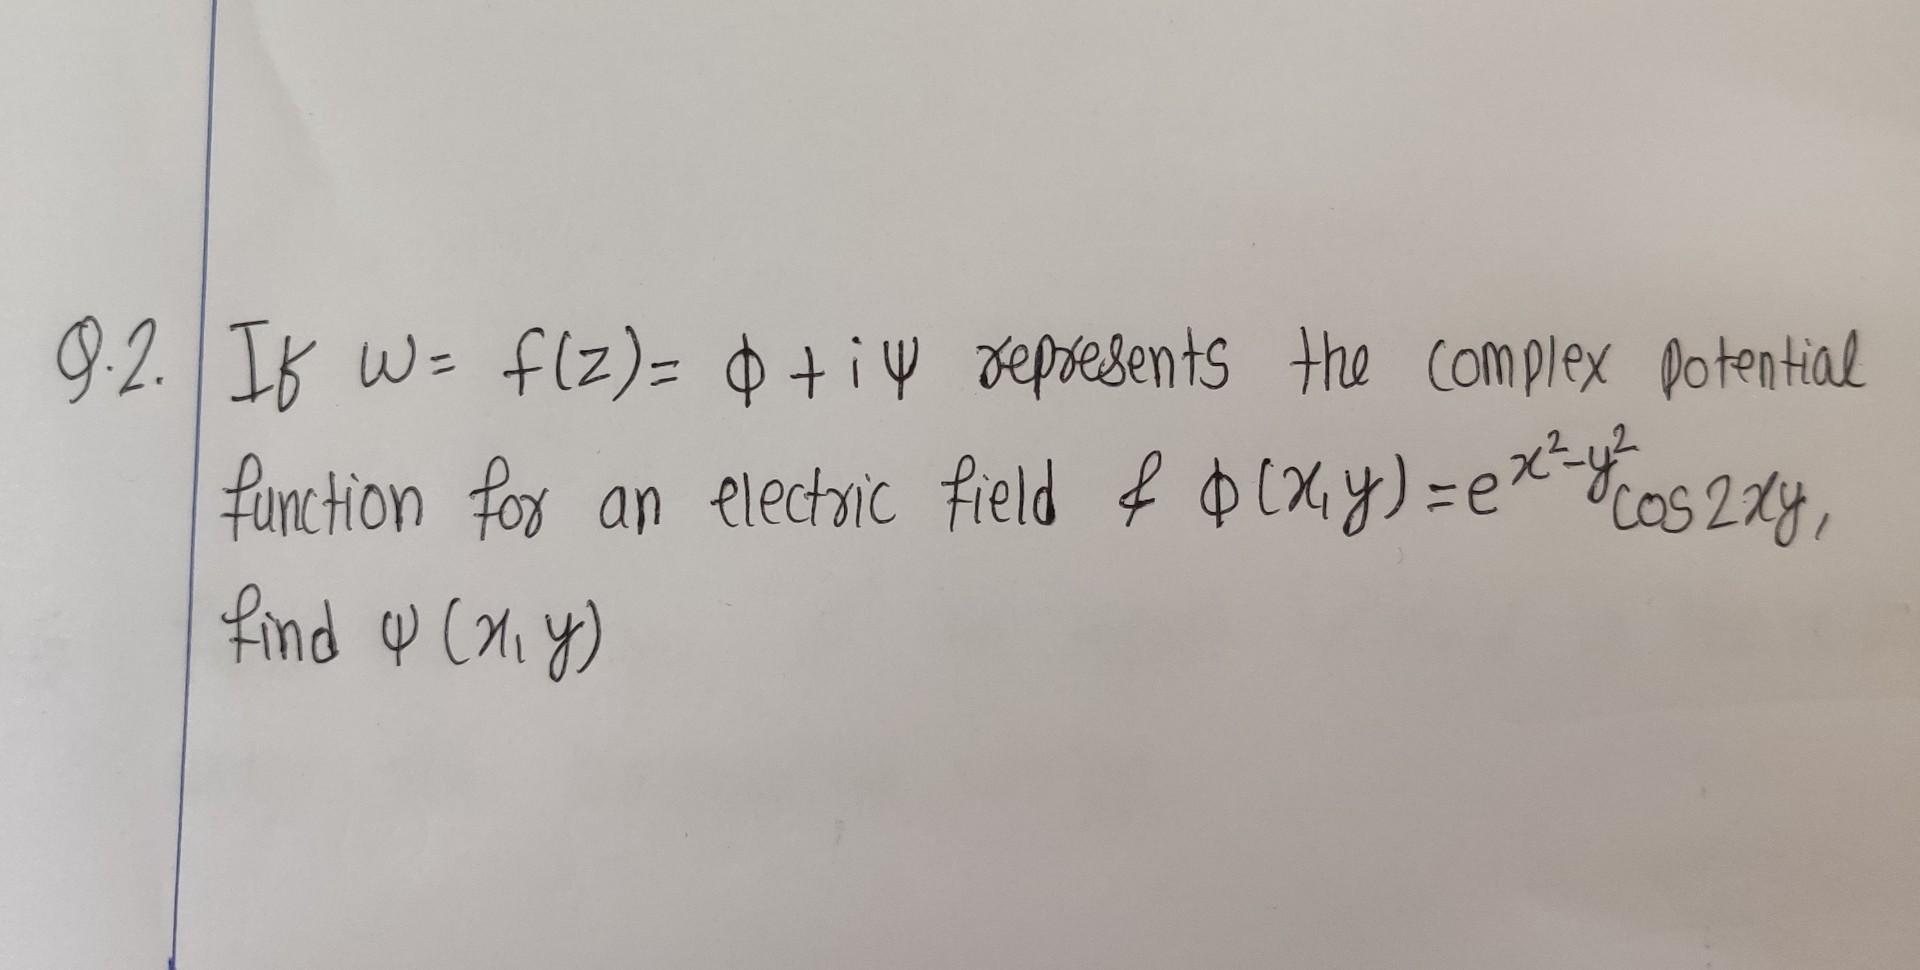 Q.2. If w = f(z) = ϕ + iψ represents the complex potential
function for an electric field & ϕ(x,y) = e^{x²-y²} cos2xy,
find ψ(x,y)